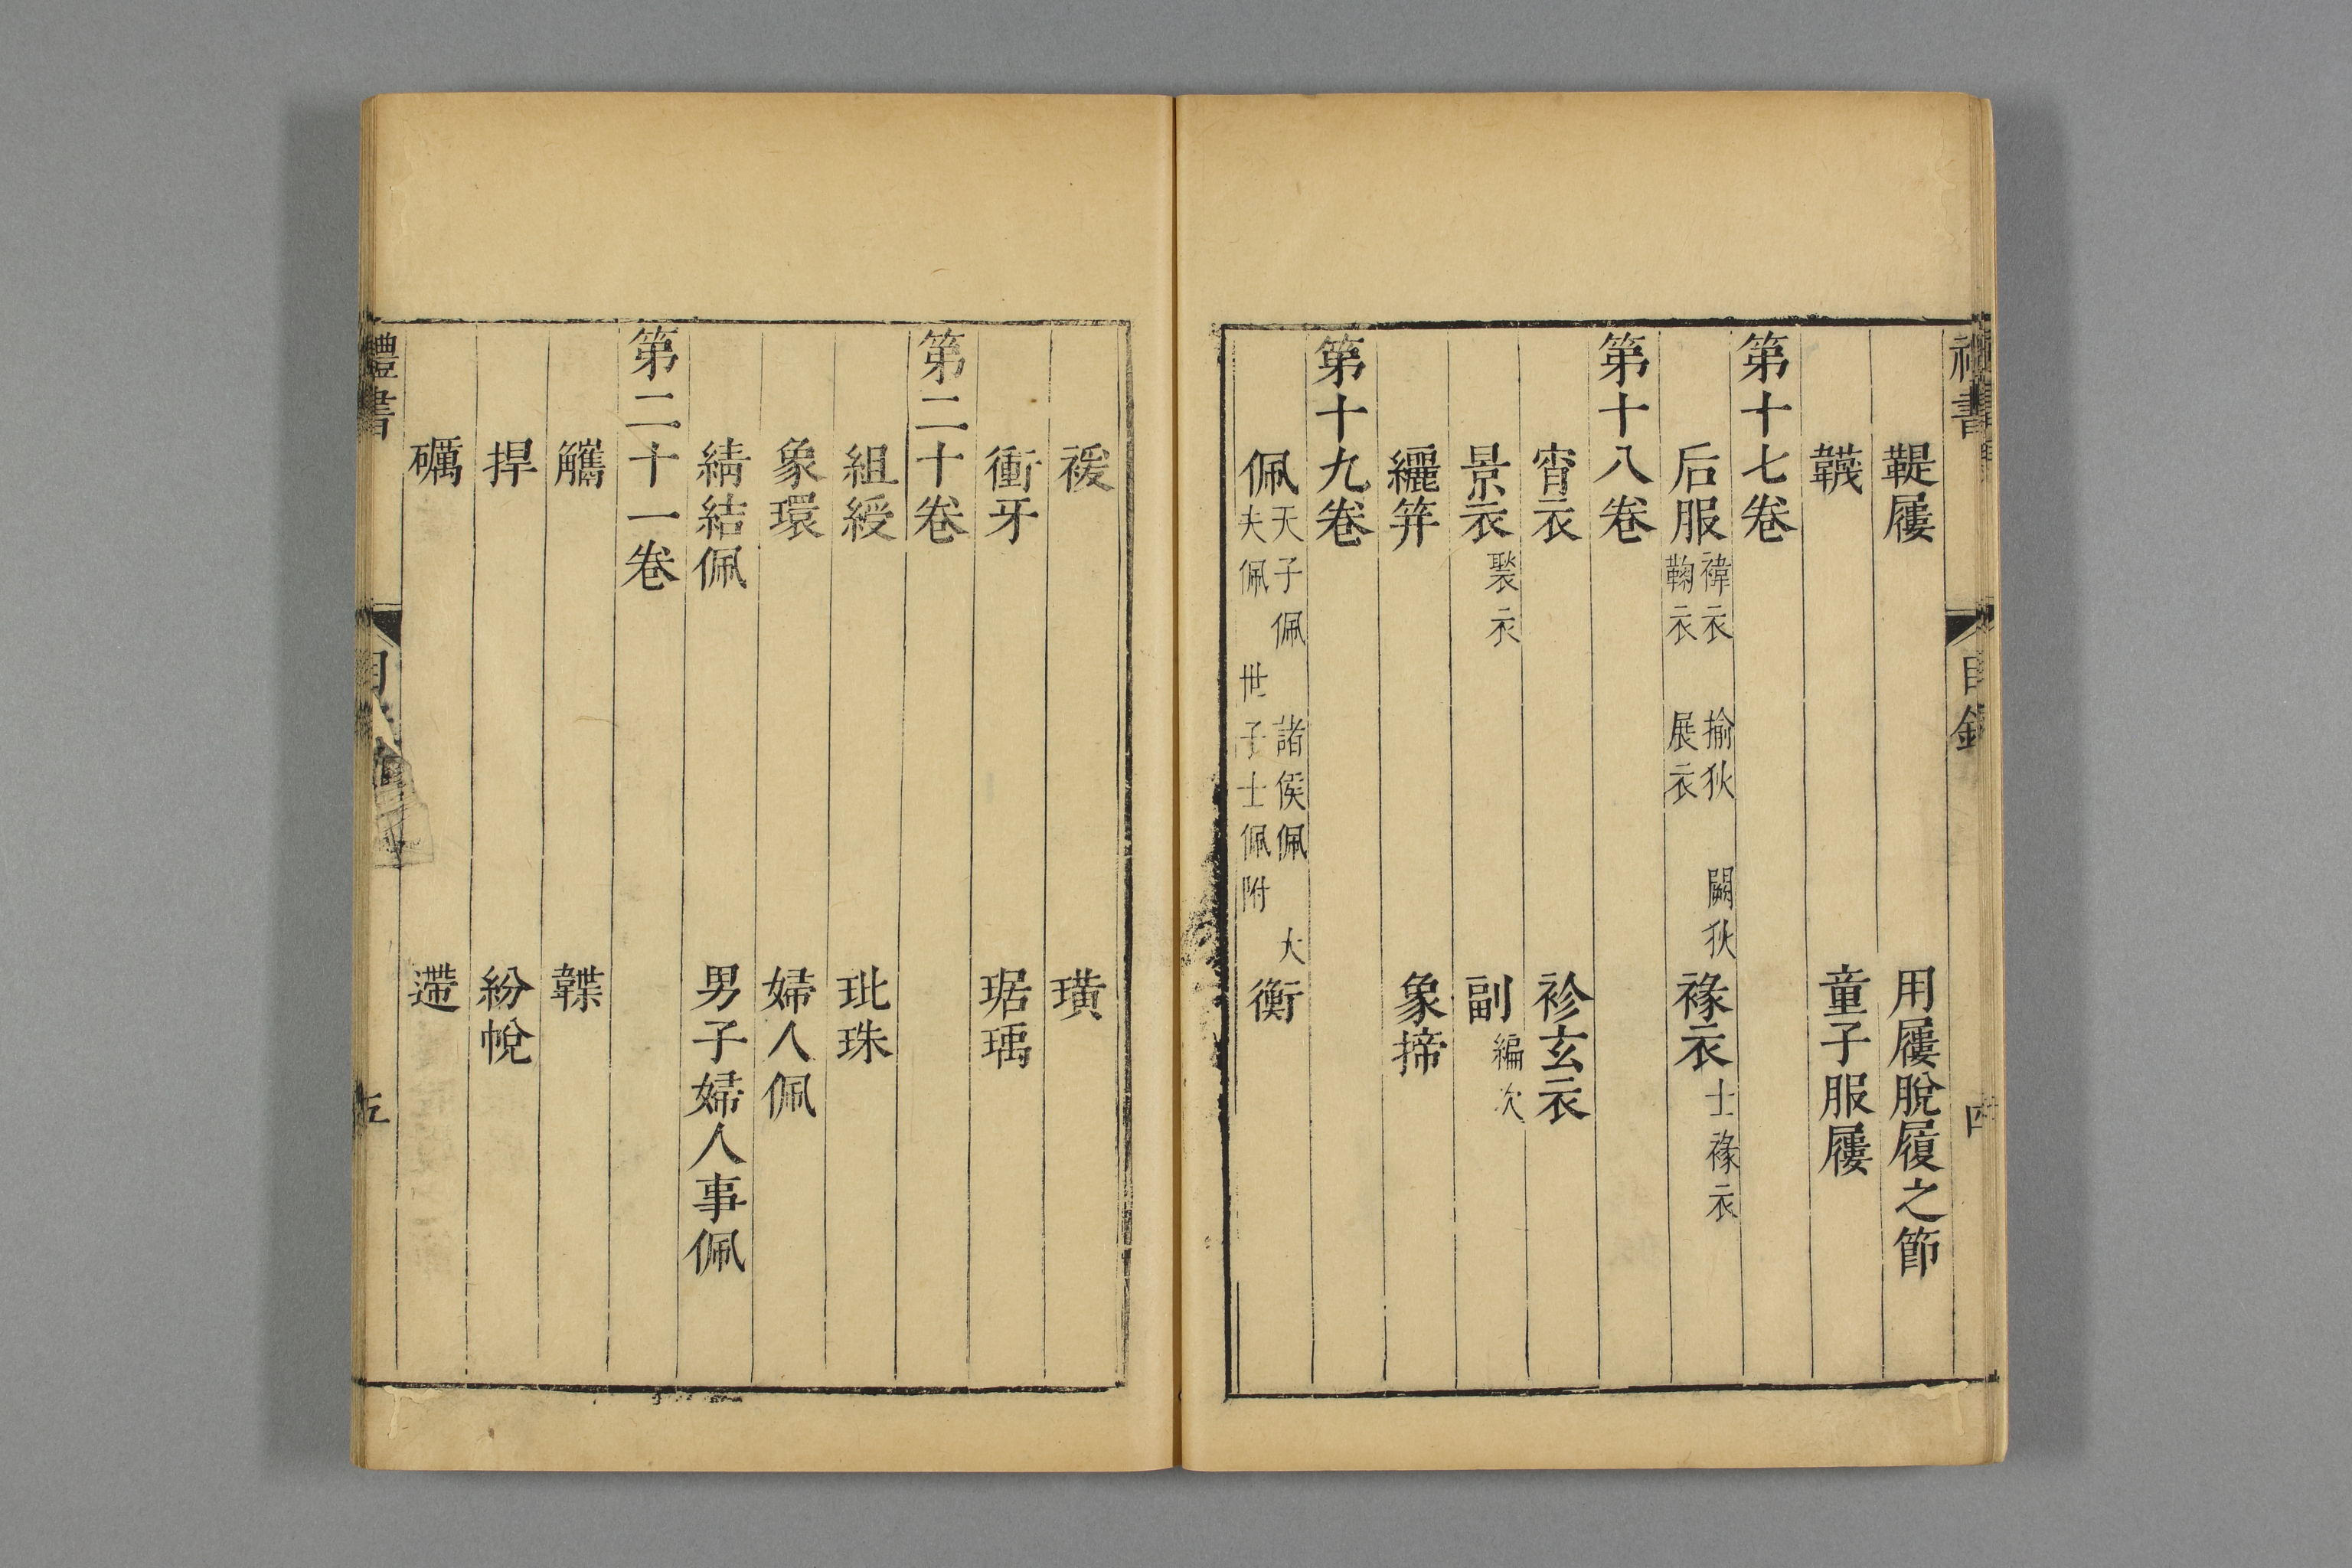 禮書 目錄 四
鞮屨 用屨脫履之節
韈 童子服屨
第十七卷
后服 褘衣 揄狄 闕狄 鞠衣 展衣 褖衣 士褖衣
第十八卷
宵衣 袗玄衣
景衣 褧衣 副 編次
纚笄 象揥
第十九卷
佩 天子佩 諸侯佩 大夫佩 世子士佩附 衡
褑 璜
衝牙 琚瑀
第二十卷
組綬 玭珠
象環 婦人佩
綪結佩 男子婦人事佩
第二十一卷
觿 韘
捍 紛帨
礪 遰
禮書 目 五